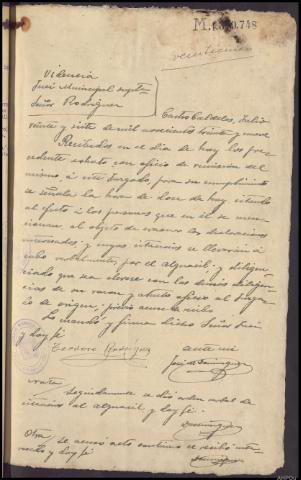 M.1.300.748
veinticinco
Videncia
Juez Municipal suplte
Señor Rodríguez
Castro Caldelas, Julio
veinte y siete de mil novecientos treinta y nueve
Recibido en el día de hoy los pre-
cedente exhorto con oficio de remisión del
mismo, a este Juzgado, para su cumplimiento
se señala la hora de doce de hoy citando
al efecto a las personas que en el se men-
cionan, al objeto de evacuar las declaraciones
interesadas; y cuyas citaciones se llevarán a
cabo verbalmente, por el alguacil; y diligen-
ciado que sea elevese con las demás diligen-
cias de su razón y atento oficio al Juzga-
do de origen, previo acuse de recibo
Lo mandó y firma dicho Señor Juez
y doy fe
Teodoro Rodríguez
ante mi
José Domínguez
Seguidamente se dió orden verbal de
citación al alguacil y doy fé.
Domínguez
Otra, se acusó acto continuo el recibo inte-
resado y doy fé
Domínguez
AHPOU